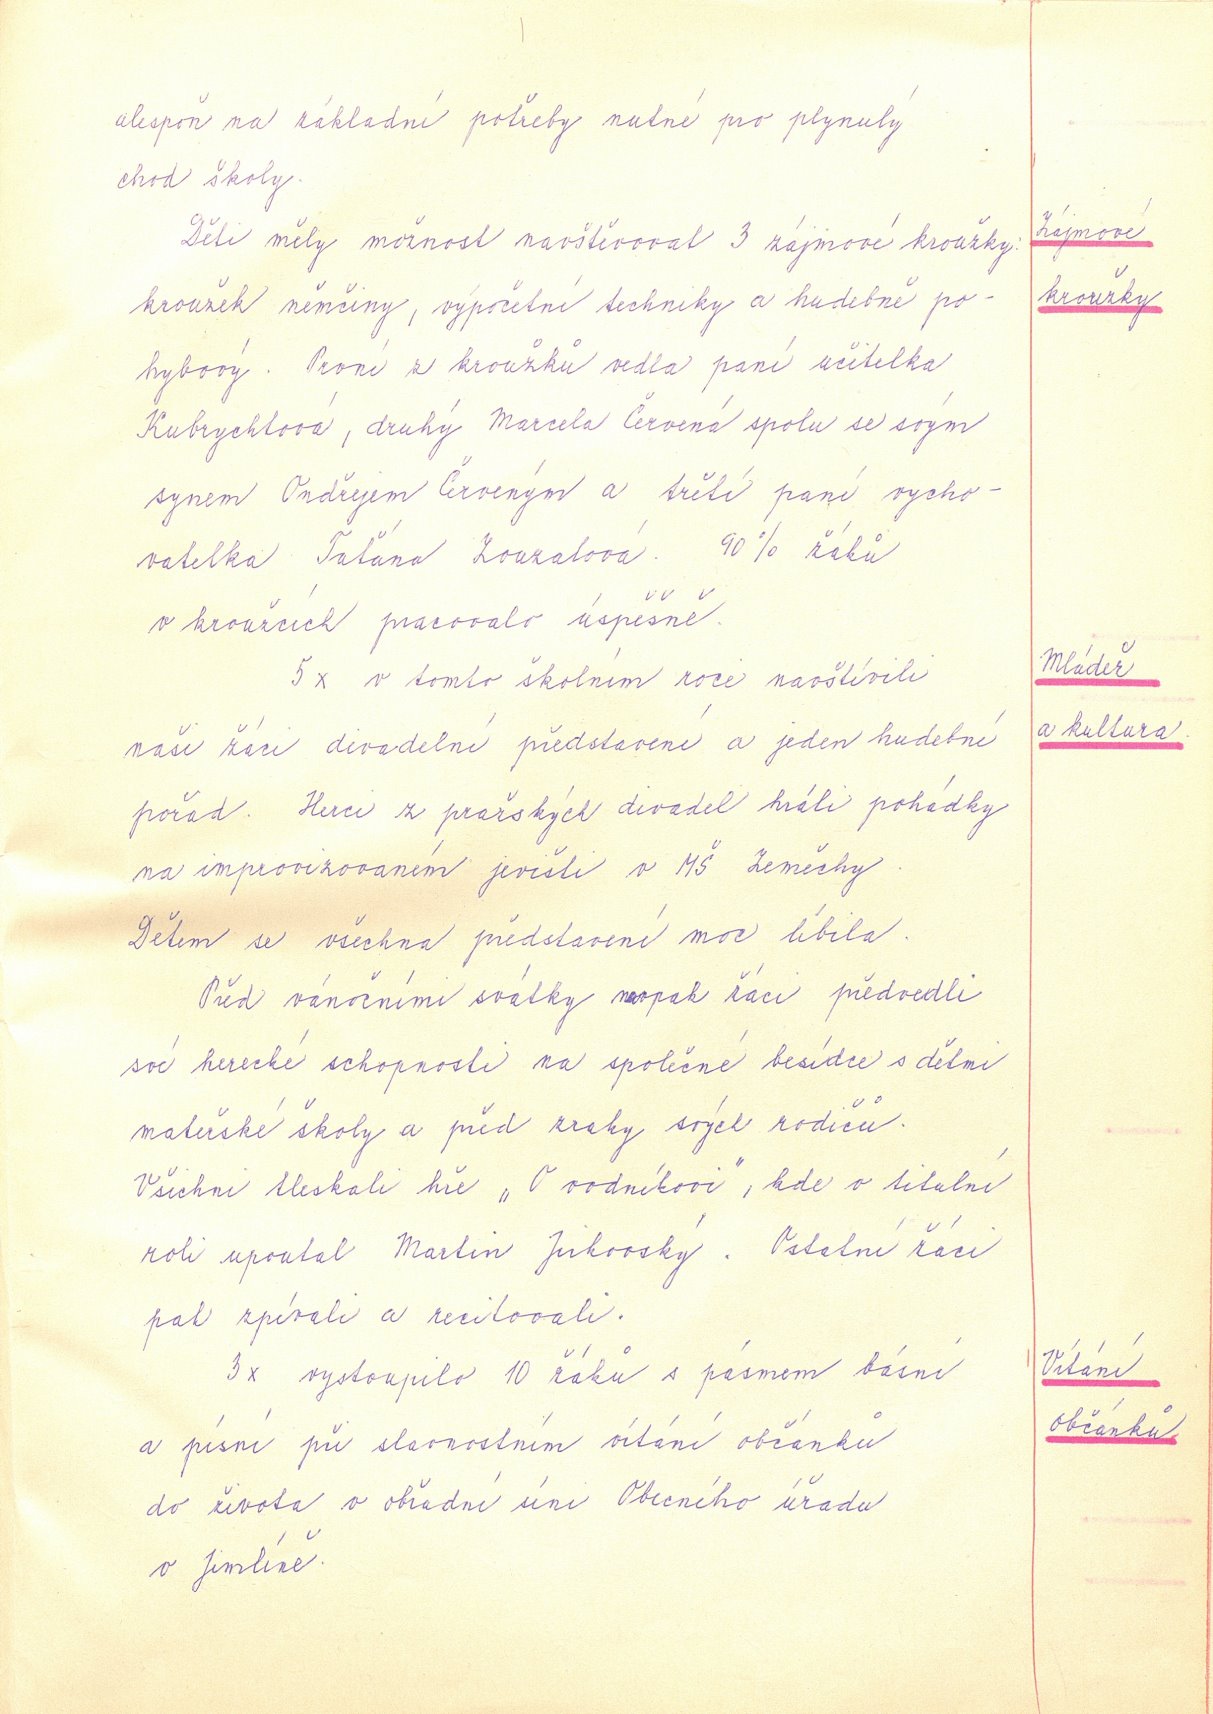 alespoň na základní potřeby nutné pro plynulý
chod školy.
Děti měly možnost navštěvovat 3 zájmové kroužky:
Zájmové
kroužek němčiny, výpočetní techniky a hudebně po-
kroužky
hybový. První z kroužků vedla paní učitelka
Kubrychtová, druhý Marcela Červená spolu se svým
synem Ondřejem Červeným a třetí paní vycho-
vatelka Taťána Zouzalová. 90% žáků
v kroužcích pracovalo úspěšně.
5x v tomto školním roce navštívili
Mládež
naši žáci divadelní představení a jeden hudební
a kultura.
pořad. Herci z pražských divadel hráli pohádky
na improvizovaném jevišti v MŠ Zeměchy.
Dětem se všechna představení moc líbila.
Před vánočními svátky naopak žáci předvedli
své herecké schopnosti na společné besídce s dětmi
mateřské školy a před zraky svých rodičů.
Všichni tleskali hře „O vodníkovi", kde v titulní
roli upoutal Martin Jirkovský. Ostatní žáci
pak zpívali a recitovali.
3x vystoupilo 10 žáků s pásmem básní
Vítání
a písní při slavnostním vítání občánků
občánků.
do života v obřadní síni Obecního úřadu
v Jimlíně.